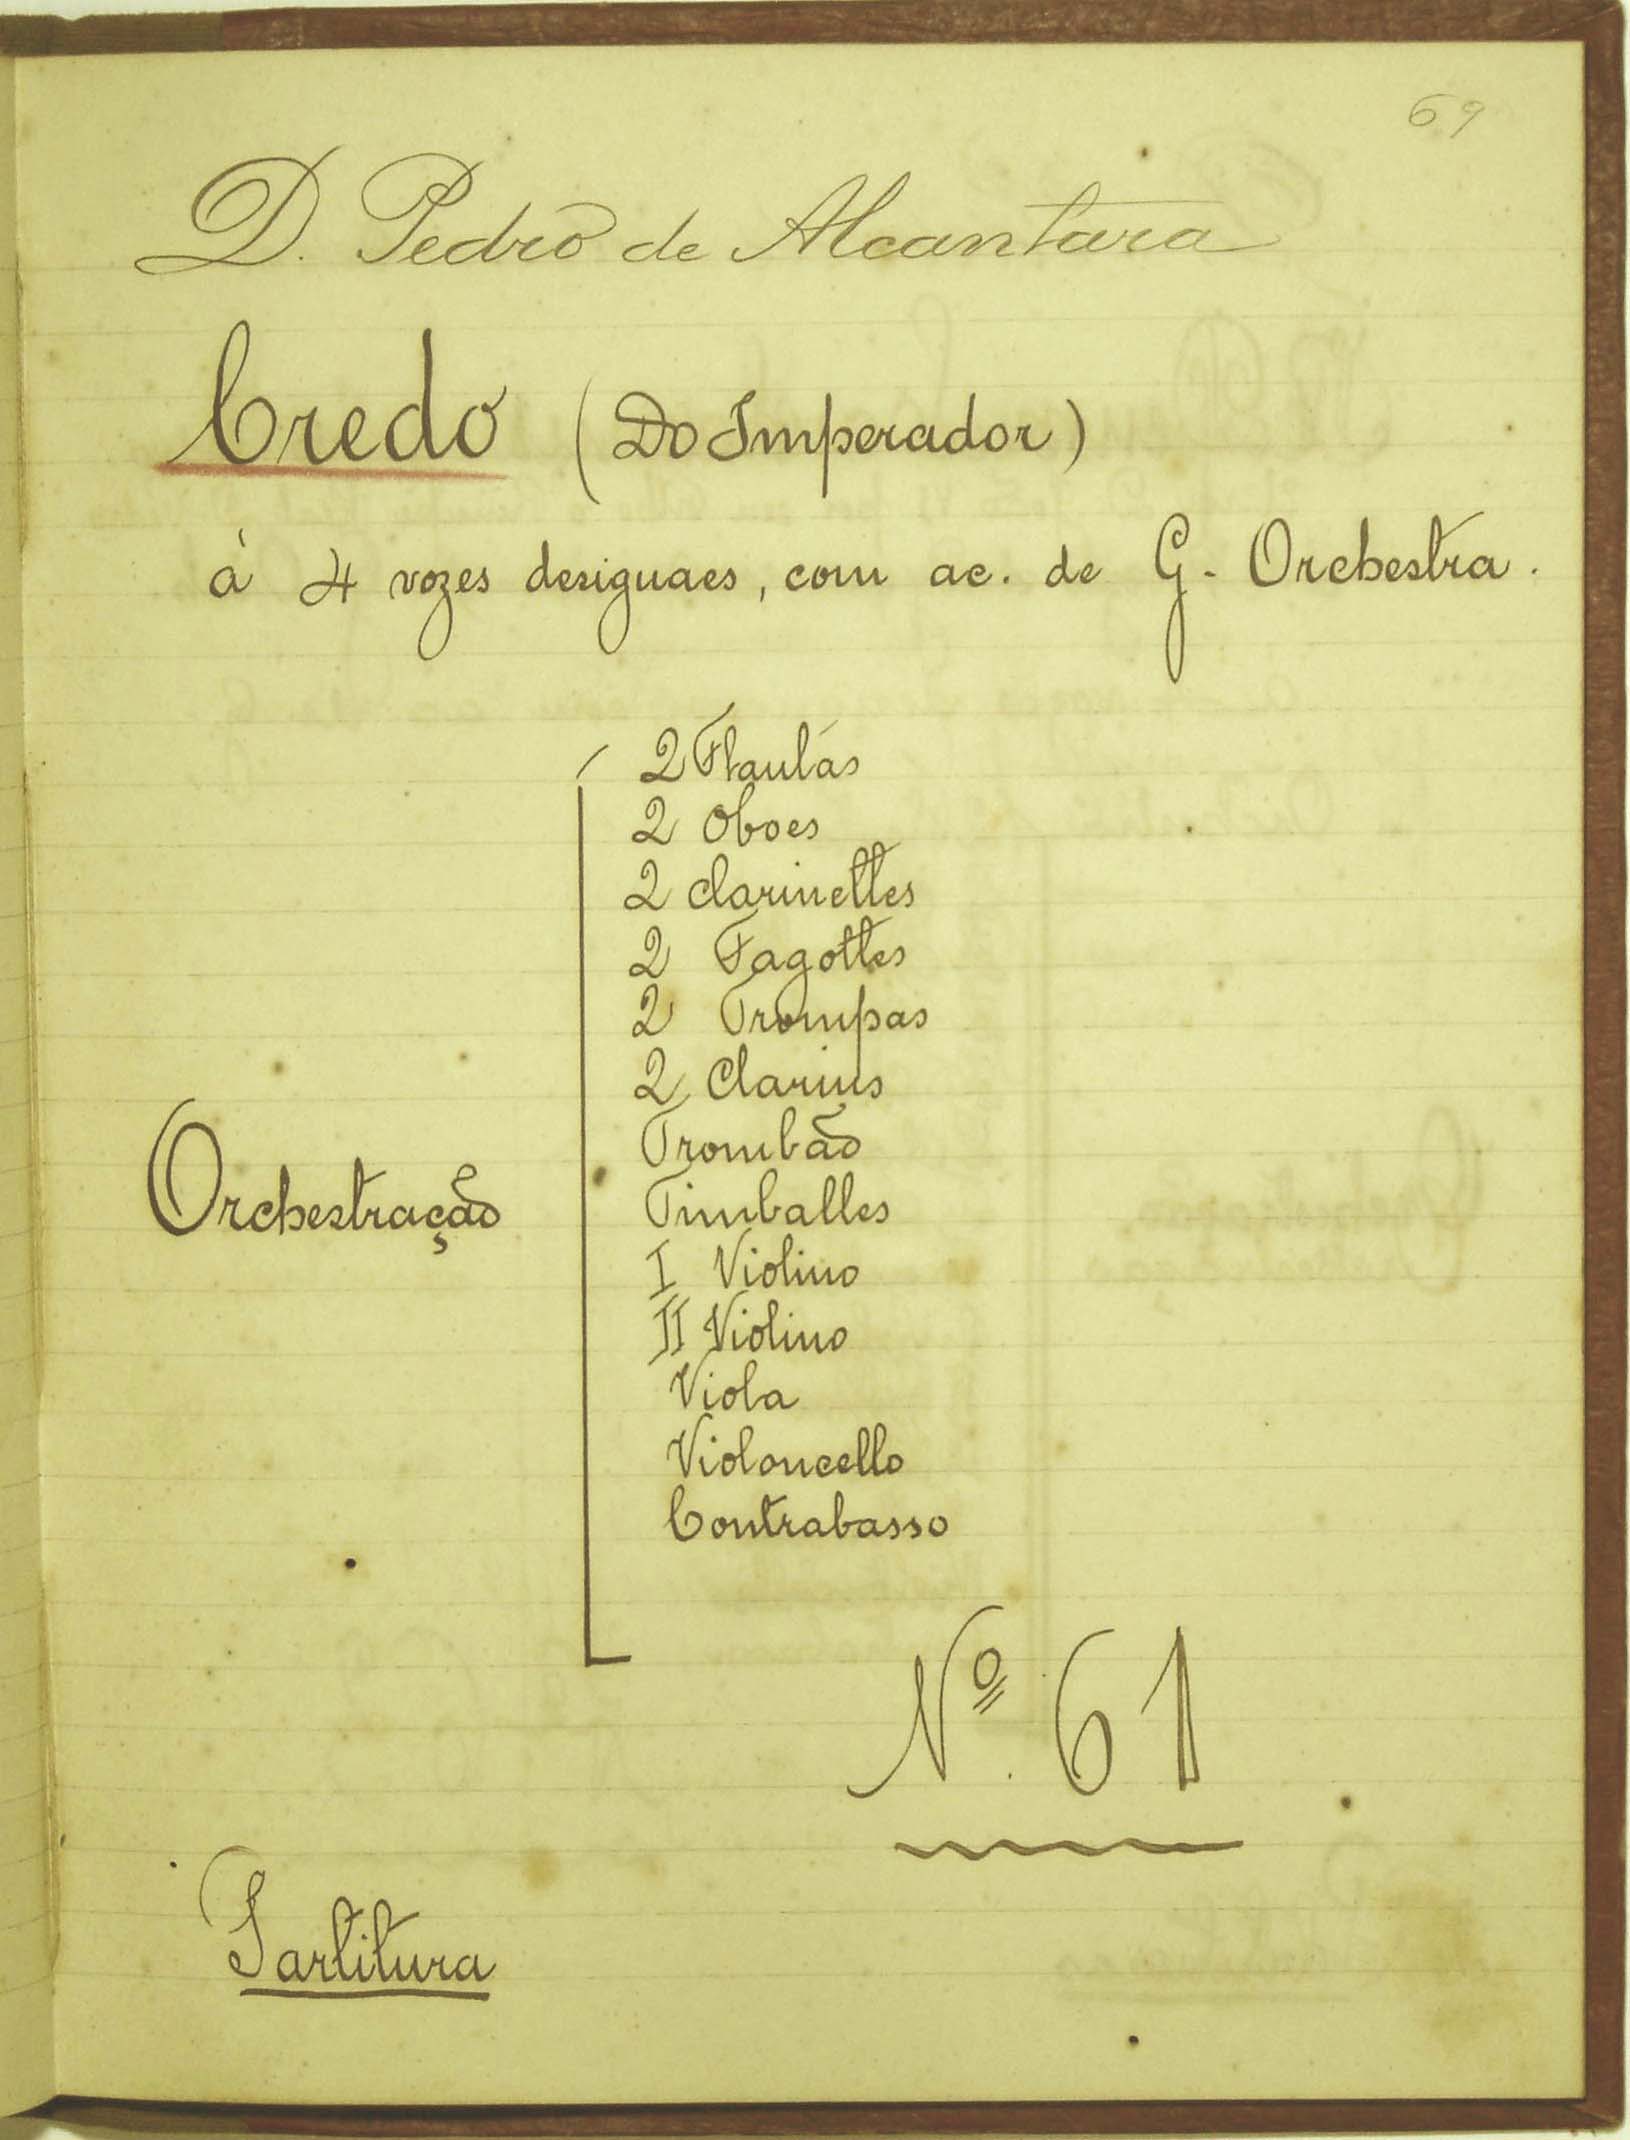 69
D. Pedro de Alcantara
Credo (Do Imperador)
à 4 vozes desiguaes, com ac. de G. Orchestra.
2 Flautas
2 Oboes
2 Clarinettes
2 Fagottes
2 Trompas
2 Clarins
Trombão
Orchestração
Timballes
I Violino
II Violino
Viola
Violoncello
Contrabasso
Nº. 61
Partitura